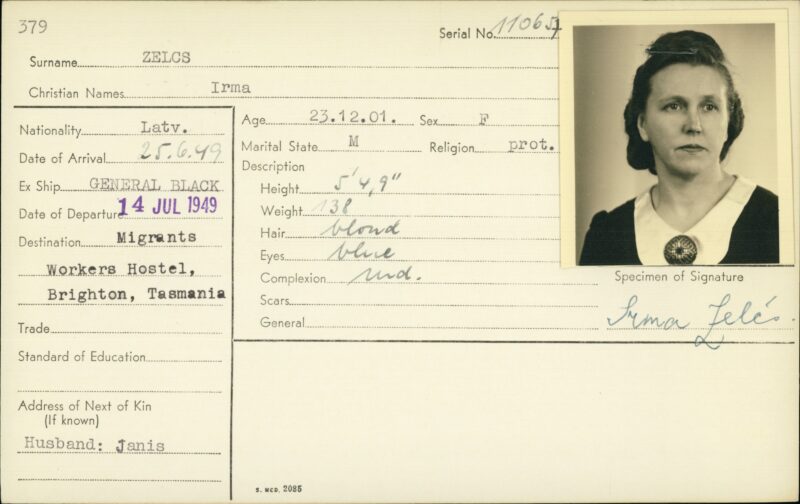 379
Serial No. 11065
Surname ZELCS
Christian Names Irma
Nationality Latv.
Date of Arrival 25.6.49
Ex Ship GENERAL BLACK
Date of Departure 14 JUL 1949
Destination Migrants
Workers Hostel,
Brighton, Tasmania
Trade
Standard of Education
Address of Next of Kin
(If known)
Husband: Janis
Age 23.12.01. Sex F
Marital State M Religion prot.
Description
Height 5'4,9"
Weight 138
Hair blond
Eyes blue
Complexion md.
Scars
General
Specimen of Signature
Irma Zelcs.
S. MCD. 2085